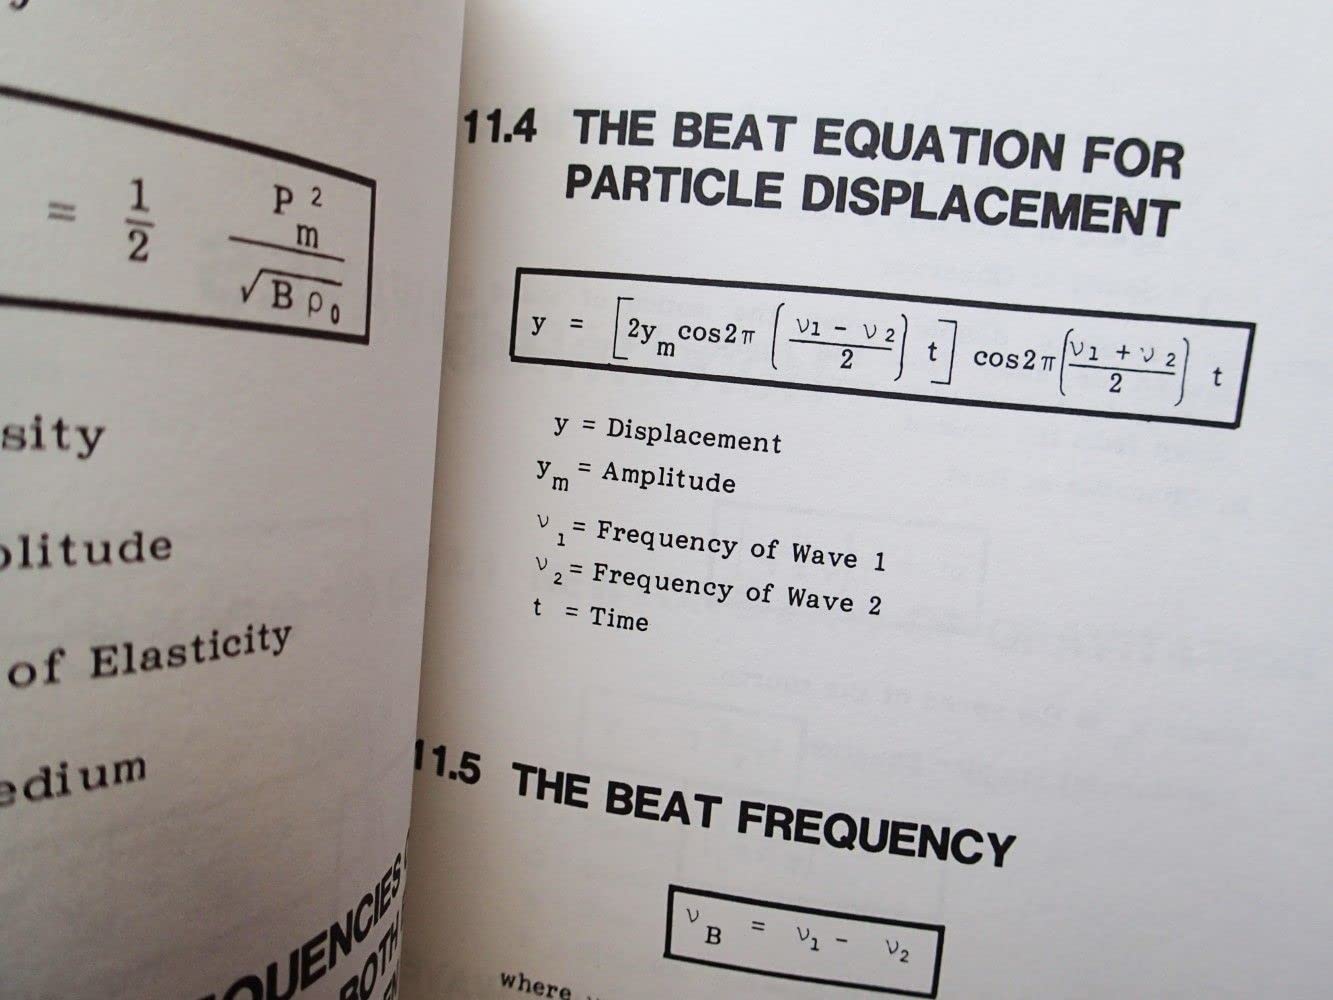 = 1/2 P_m^2 / √(B ρ_0)
sity
plitude
of Elasticity
edium
QUENCIES
BOTH
11.4 THE BEAT EQUATION FOR
PARTICLE DISPLACEMENT
y = [2y_m cos2π ((ν_1 - ν_2)/2) t] cos2π((ν_1 + ν_2)/2) t
y = Displacement
y_m = Amplitude
ν_1 = Frequency of Wave 1
ν_2 = Frequency of Wave 2
t = Time
11.5 THE BEAT FREQUENCY
ν_B = ν_1 - ν_2
where